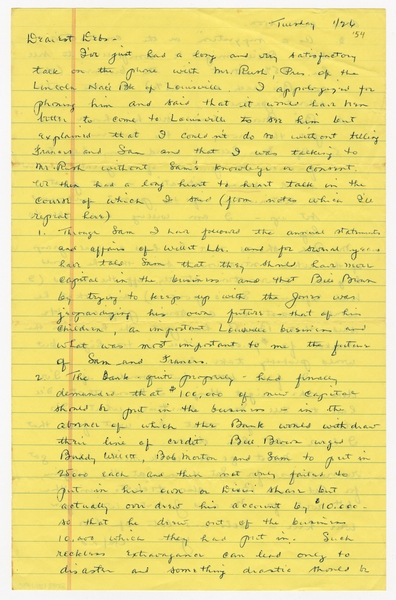 Tuesday 1/26
'54
Dearest Debs -
I've just had a long and very satisfactory
talk on the phone with Mr. Rush, Pres. of the
Lincoln Nat'l Bk of Louisville. I apologized for
phoning him and said that it would have been
better to come to Louisville to see him but
explained that I couldn't do so without telling
Frances and Sam and that I was talking to
Mr. Rush without Sam's knowledge or consent.
We then had a long heart to heart talk in the
course of which I said (from notes which I'll
repeat here)
1. Through Sam I have followed the annual statements
and affairs of Willett Lbr. and for several years
have told Sam that they should have more
capital in the business and that Bill Brown
by trying to keep up with the Jones was
jeopardizing his own future - that of his
children, an important Louisville business and
what was most important to me the future
of Sam and Frances.
2. The Bank - quite properly - had finally
demanded that $100,000 of new capital
should be put in the business - in the
absence of which the Bank would withdraw
their line of credit. Bill Brown urged
Buddy Willett, Bob Morton and Sam to put in
25000 each and then not only failed to
put in his own or share but
actually overdrew his account by $10,000 -
so that he drew out of the business
10,000 which they had put in. Such
reckless extravagance can lead only to
disaster and something drastic should be